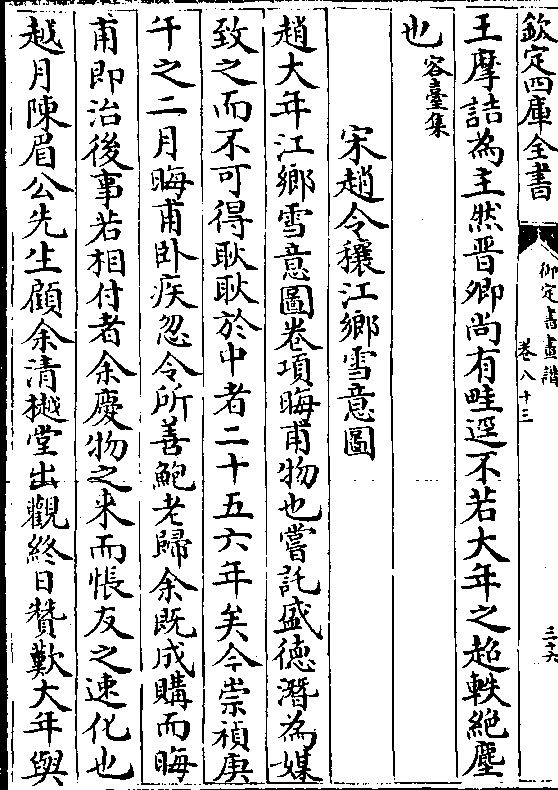 欽定四庫全書
御定書畫譜
卷八十三
三十六
王摩詰為主然晋卿尚有畦逕不若大年之超軼絶塵
也容臺集
宋趙令穰江鄉雪意圖
趙大年江鄉雪意圖卷項晦甫物也嘗託盛徳潛為媒
致之而不可得耿耿於中者二十五六年矣今崇禎庚
午之二月晦甫卧疾忽令所善鮑老歸余既成購而晦
甫即治後事若相付者余慶物之来而悵友之速化也
越月陳眉公先生顧余清樾堂出觀終日賛歎大年與